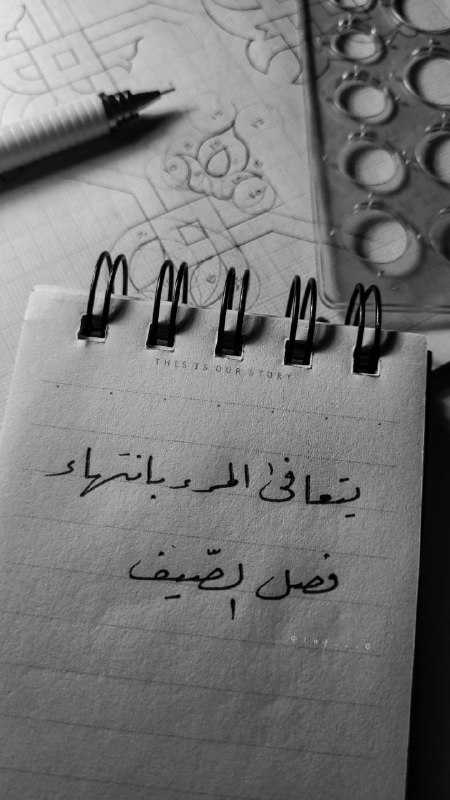 THIS IS OUR STORY
يتعافىٰ المرء بانتهاء
فصل الصّيف